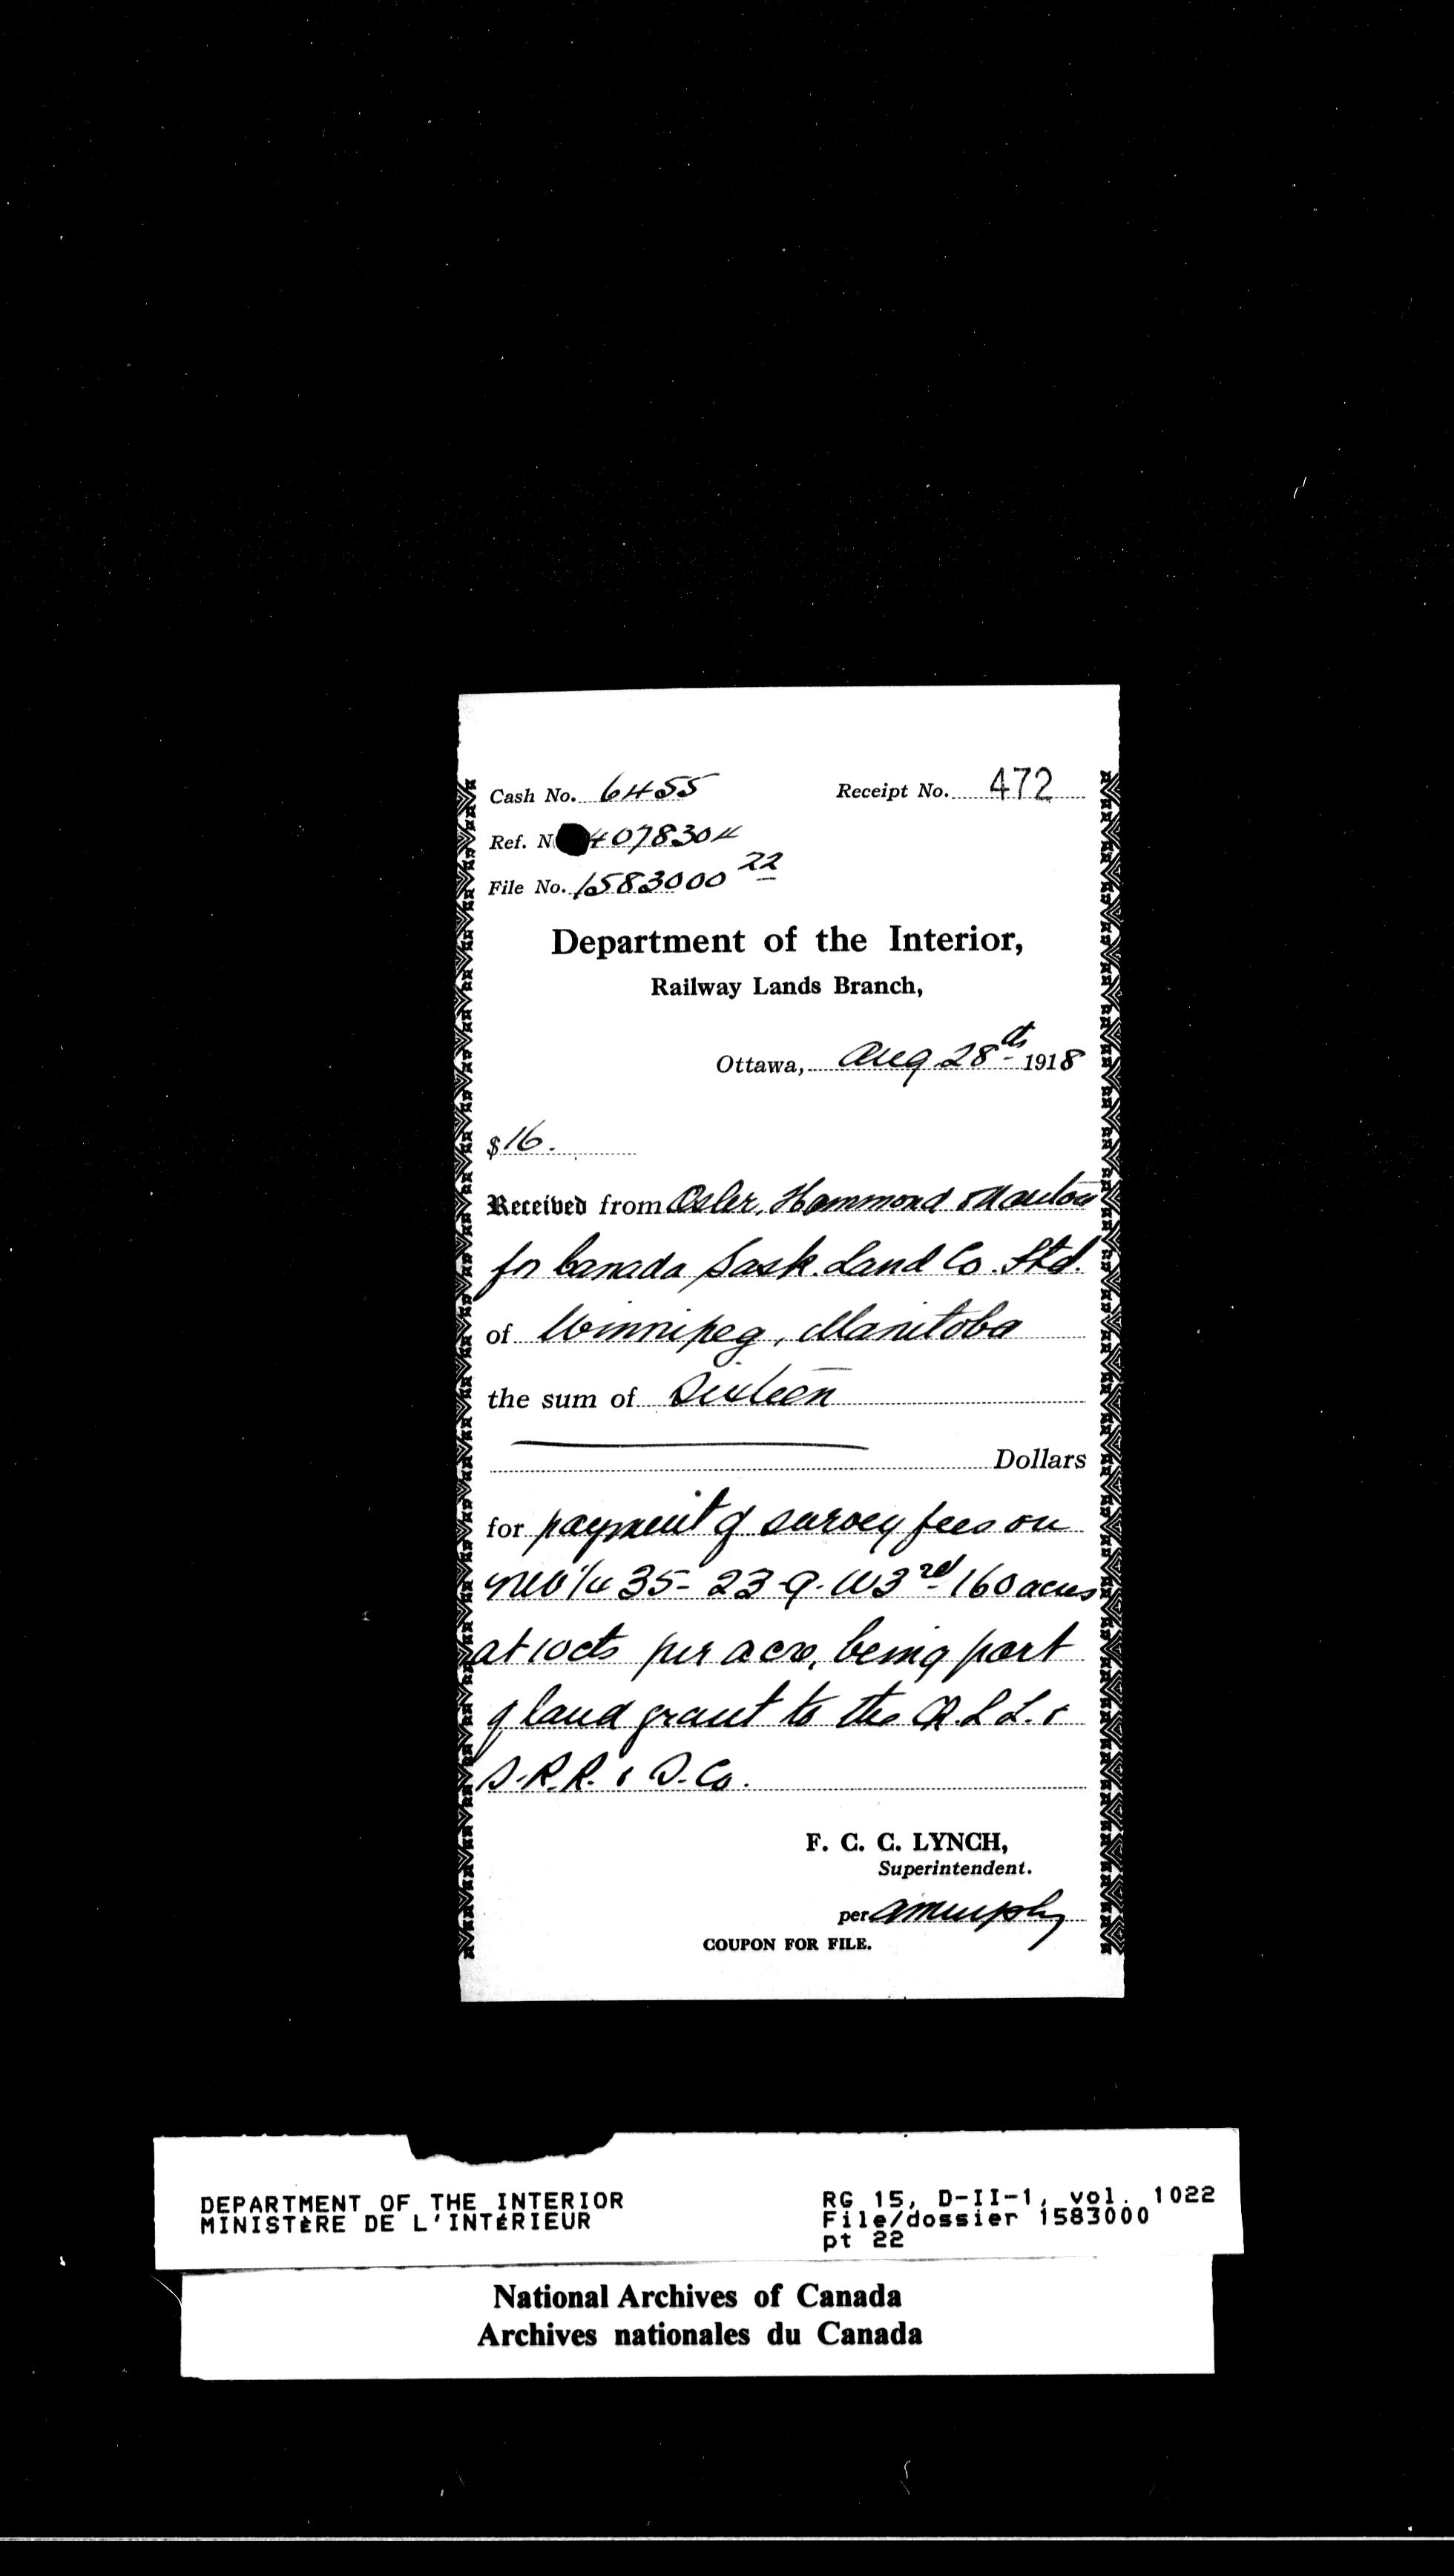 Cash No. 6455 Receipt No. 472
Ref. N 4078304
File No. 1583000 22
Department of the Interior,
Railway Lands Branch,
Ottawa, Aug 28th 1918
$16.
Received from Osler, Hammond & Nanton
for Canada Sask. Land Co. Ltd.
of Winnipeg, Manitoba
the sum of Sixteen
Dollars
for payment of survey fees on
NW 1/4 35-23-9-W3rd 160 acres
at 10cts per acre, being part
of land grant to the Q.L.L. &
S.R.R. & S. Co.
F. C. C. LYNCH,
Superintendent.
per A Murphy
COUPON FOR FILE.
DEPARTMENT OF THE INTERIOR RG 15, D-II-1, vol. 1022
MINISTÈRE DE L'INTÉRIEUR File/dossier 1583000
pt 22
National Archives of Canada
Archives nationales du Canada